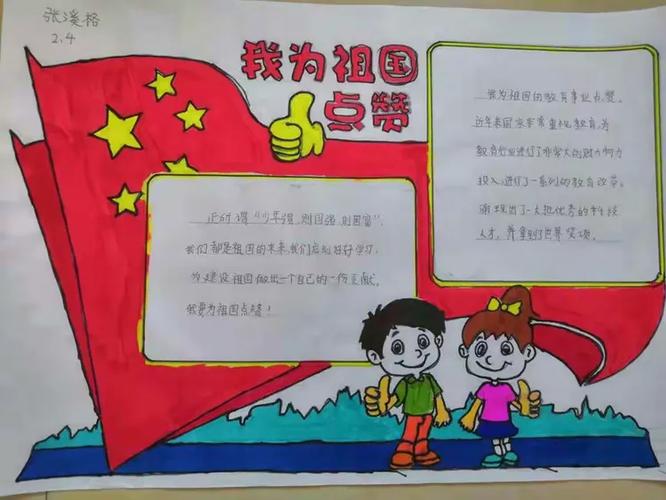 张溪格
2.4
我为祖国
点赞
我为祖国的教育事业点赞。
近年来国家非常重视教育,为
教育行业进行了非常大的财力物力
投入,进行了一系列的教育改革,
涌现出了一大批优秀的科技
人才,并拿到了世界奖项。
正所谓“少年强,则国强,则国富”,
我们都是祖国的未来,我们应刻好好学习,
为建设祖国做出一个自己的一份贡献。
我要为祖国点赞!